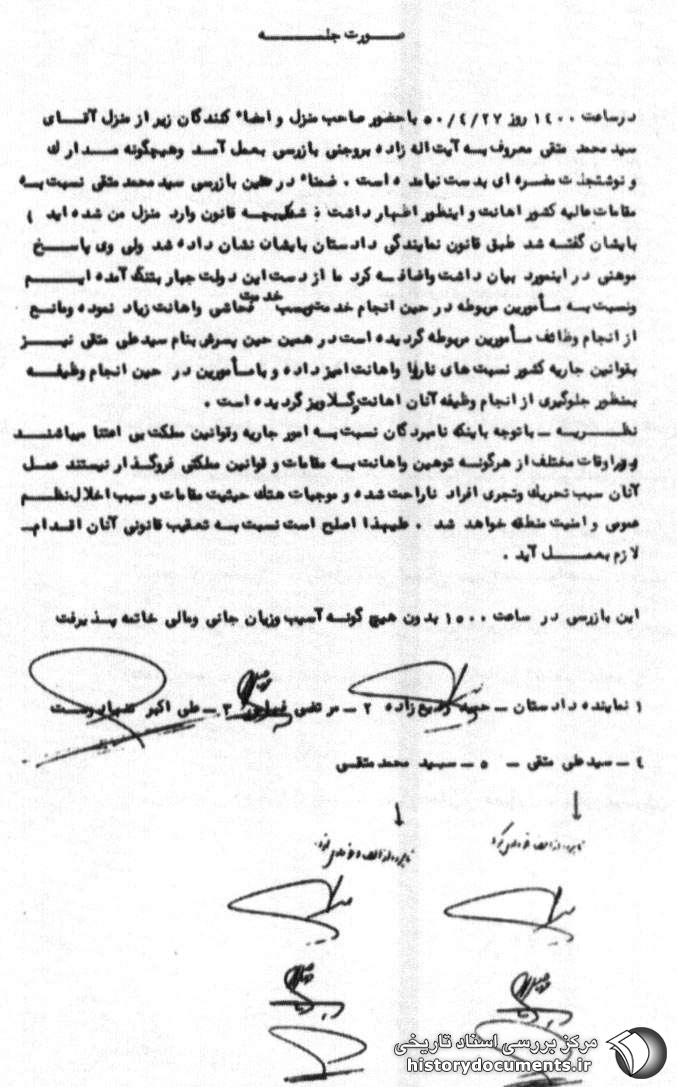 صورت جلسه
درساعت ۱٤۰۰ روز ۵۰/٤/۲۷ باحضور صاحب منزل و امضاء کنندگان زیر از منزل آقای
سید محمد متقی معروف به آیت اله زاده بروجنی بازرسی بعمل آمد وهیچگونه مدارك
و نوشتجات مضره ای بدست نیامده است . ضمناً در حین بازرسی سید محمد متقی نسبت به
مقامات عالیه کشور اهانت و اینطور اظهار داشت : شما بچه قانون وارد منزل من شده اید
بایشان گفته شد طبق قانون نمایندگی دادستان بایشان نشان داده شد ولی وی پاسخ
موهنی در اینمورد بیان داشت واضافه کرد ما از دست این دولت جبار بتنگ آمده ایم
ونسبت به مأمورین مربوطه در حین انجام خدمت فحاشی واهانت زیاد نموده ومانع
از انجام وظائف مأمورین مربوطه گردیده است در همین حین پسرش بنام سیدعلی متقی نیز
بقوانین جاریه کشور نسبت های ناروا واهانت امیز داده و با مأمورین در حین انجام وظیفه
بمنظور جلوگیری از انجام وظیفه آنان اهانت وگلاویز گردیده است .
نظریه ـ باتوجه باینکه نامبردگان نسبت به امور جاریه وقوانین مملکت بی اعتنا میباشند
و در اوقات مختلف از هرگونه توهین واهانت به مقامات و قوانین مملکتی فروگذار نیستند عمل
آنان سبب تحریك وتجری افراد ناراحت شده و موجبات هتك حیثیت مقامات و سبب اخلال نظم
عمومی و امنیت منطقه خواهد شد . علیهذا اصلح است نسبت به تعقیب قانونی آنان اقدام
لازم بعمل آید .
این بازرسی در ساعت ۱۵۰۰ بدون هیچ گونه آسیب وزیان جانی ومالی خاتمه پذیرفت
۱ نماینده دادستان ـ حمید زاده ۲ ـ مرتضی ۳ ـ علی اکبر
٤ ـ سیدعلی متقی ـ ۵ ـ سید محمد متقی
مرکز بررسی اسناد تاریخی
historydocuments.ir